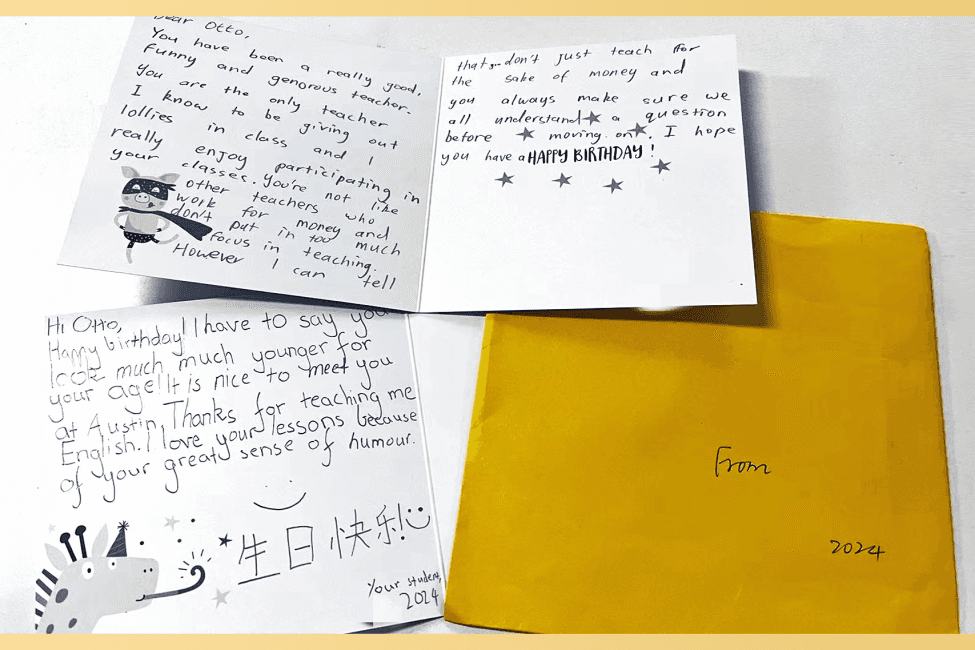 Dear Otto,
You have been a really good,
funny and genorous teacher.
You are the only teacher
I know to be giving out
lollies in class and I
really enjoy participating in
your classes. You're not like
other teachers who
work for money and
don't put in too much
focus in teaching.
However I can tell
that you don't just teach for
the sake of money and
you always make sure we
all understand a question
before moving on. I hope
you have a HAPPY BIRTHDAY!
Hi Otto,
Happy birthday! I have to say you
look much much younger for
your age! It is nice to meet you
at Austin. Thanks for teaching me
English. I love your lessons because
of your great sense of humour.
生日快乐!
Your student,
2024
From
2024